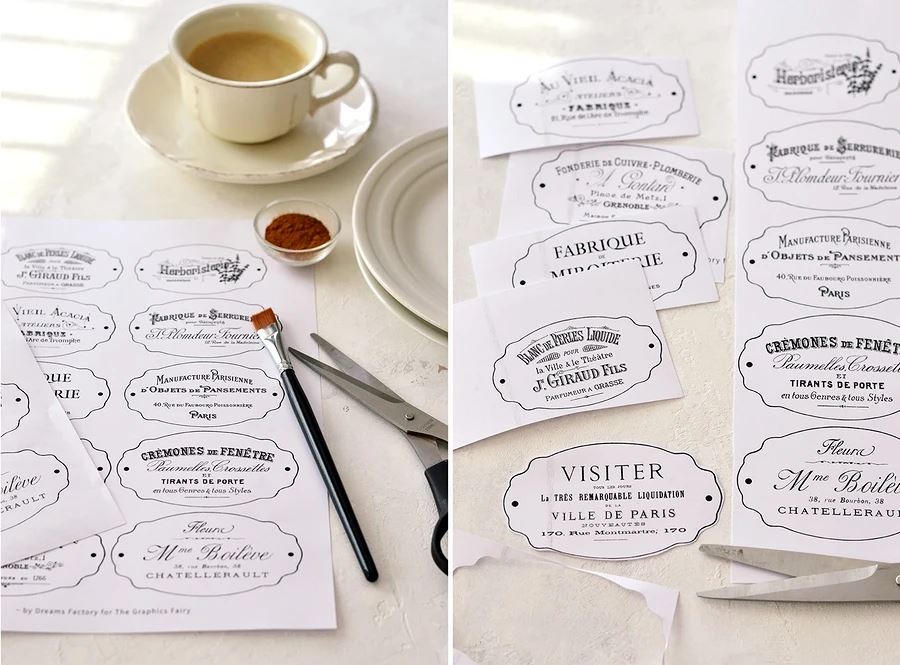 BLANC DE PERLES LIQUIDE
POUR
la Ville & le Théâtre
Jh. GIRAUD FILS
PARFUMEUR A GRASSE
Herboristerie
VIEIL ACACIA
ATELIERS
FABRIQUE
Rue de l'Arc de Triomphe
FABRIQUE DE SERRURERIE
T. Plomdeur-Fournier
12, Rue de la Madeleine
QUE
RIE
MANUFACTURE PARISIENNE
D'OBJETS DE PANSEMENTS
40, RUE DU FAUBOURG POISSONNIÈRE
PARIS
CRÉMONES DE FENÊTRE
Paumelles, Crosselles
ET
TIRANTS DE PORTE
en tous Genres & tous Styles
oilève
LLERAULT
Fleurs
Mme Boilève
38, rue Bourbon, 38
CHATELLERAULT
Metz, 1
NOBLE
en 1766
~ by Dreams Factory for The Graphics Fairy
AU VIEIL ACACIA
ATELIERS
FABRIQUE
91, Rue de l'Arc de Triomphe
FONDERIE DE CUIVRE-PLOMBERIE
A. Gontard
Place de Metz, 1
GRENOBLE
Maison F
FABRIQUE
DE
MIROITERIE
BLANC DE PERLES LIQUIDE
POUR
la Ville & le Théâtre
Jh. GIRAUD FILS
PARFUMEUR A GRASSE
VISITER
TOUS LES JOURS
LA TRÈS REMARQUABLE LIQUIDATION
DE LA
VILLE DE PARIS
NOUVEAUTÉS
170, Rue Montmartre, 170
Herboristerie
FABRIQUE DE SERRURERIE
T. Plomdeur-Fournier
12, Rue de la Madeleine
MANUFACTURE PARISIENNE
D'OBJETS DE PANSEMENT
40, RUE DU FAUBOURG POISSONNIÈRE
PARIS
CRÉMONES DE FENÊT
Paumelles, Crosselles
ET
TIRANTS DE PORTE
en tous Genres & tous Styles
Fleurs
Mme Boilèv
38, rue Bourbon, 38
CHATELLERAU